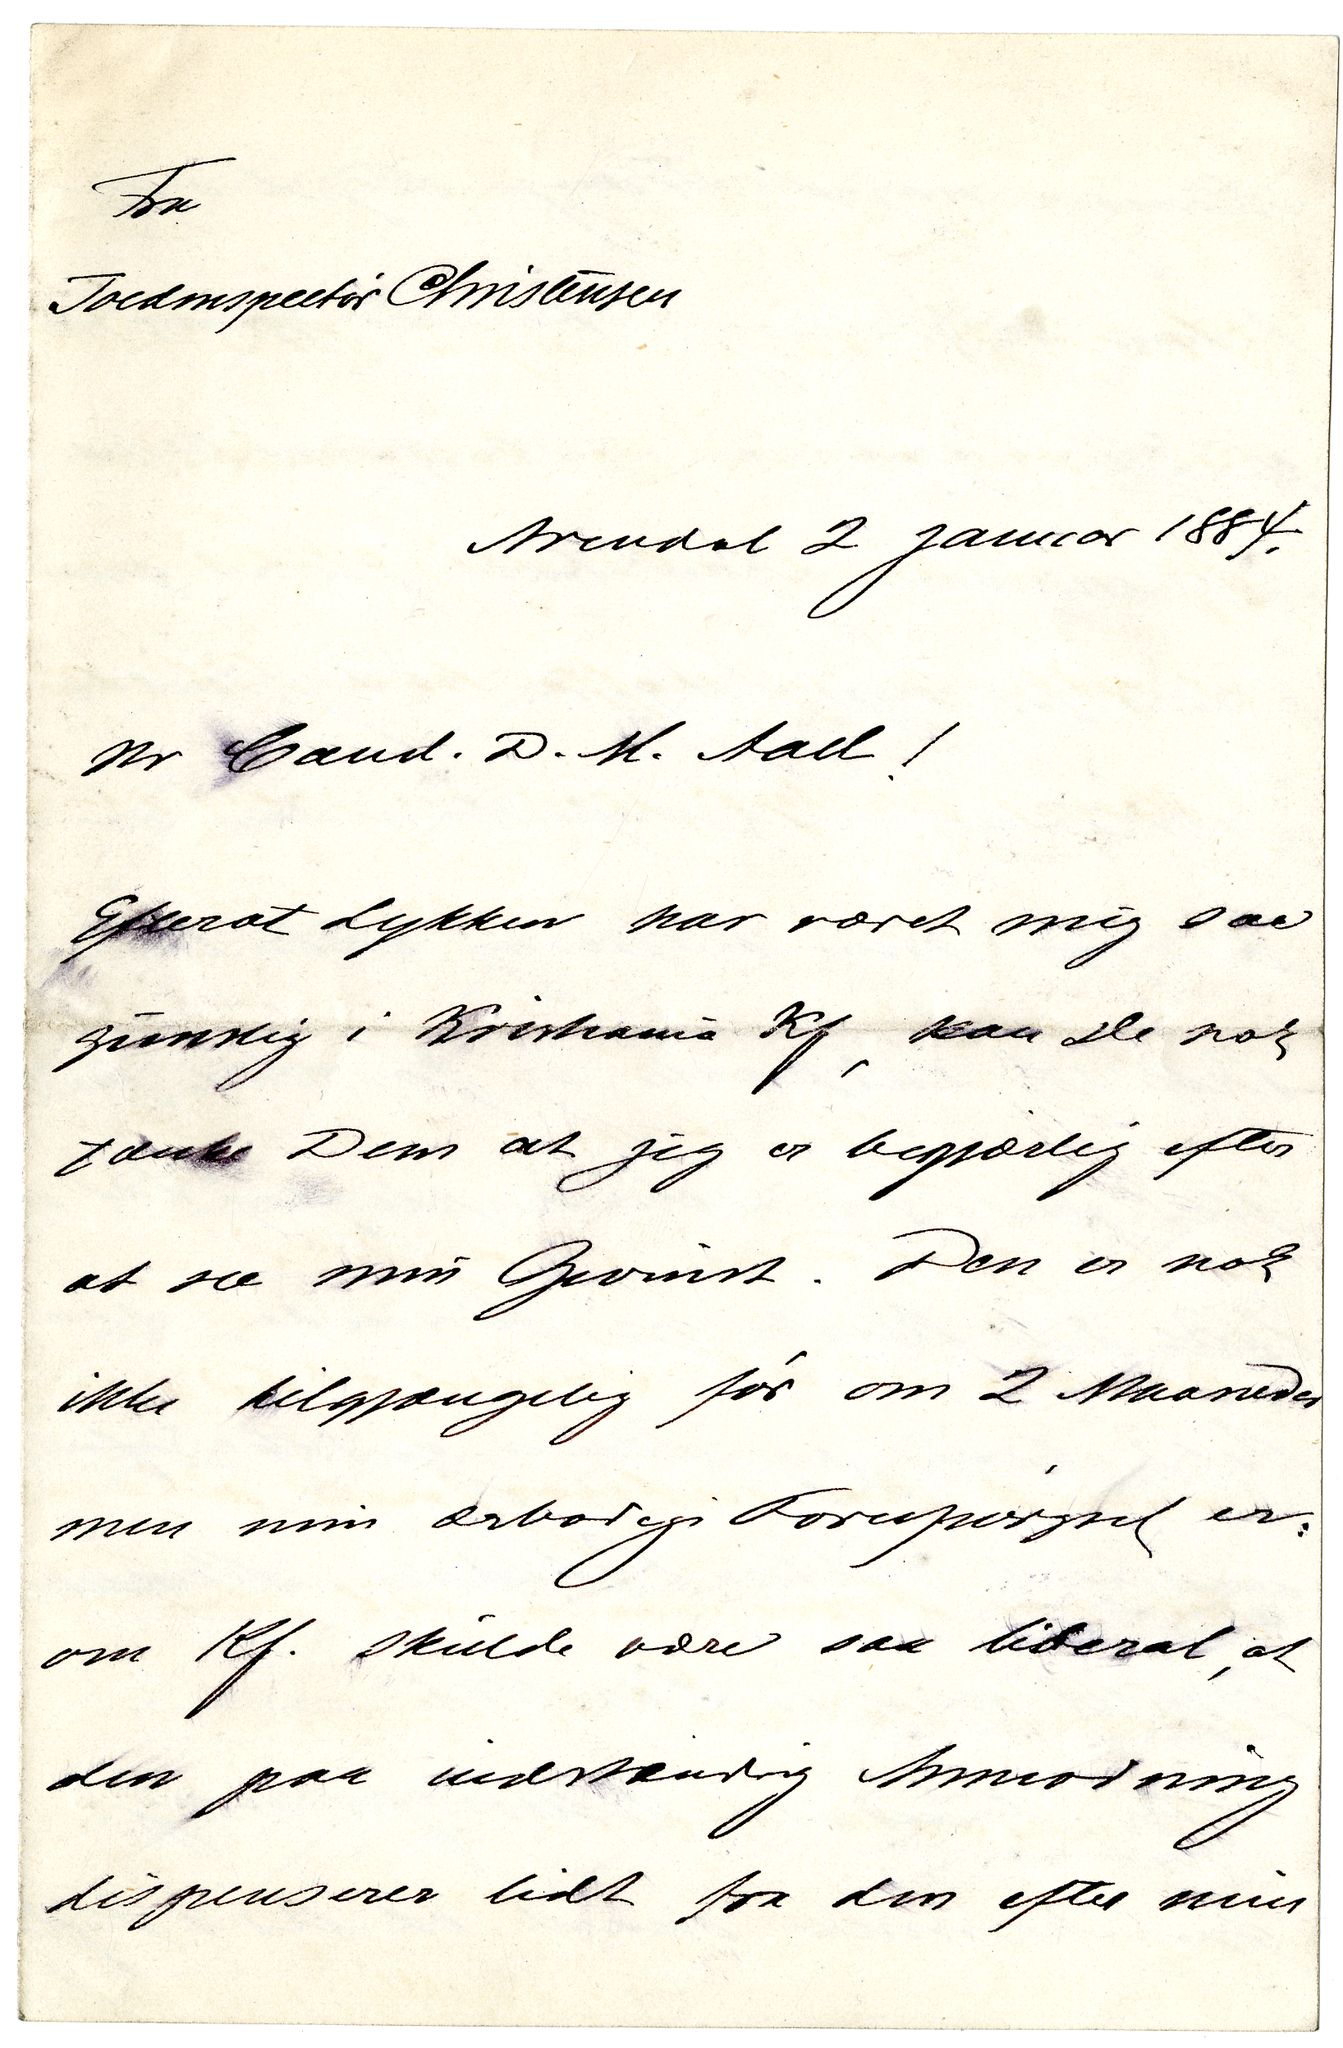 Fra
Toldinspectør Christensen
Arendal 2 Januar 1884.
Hr Cand. D. M. Aall!
Efterat Lykken har været mig saa
gunstig i Kristiania Kf, kan De nok
tænke Dem at jeg er begjærlig efter
at see min Gevinst. Den er nok
ikke tilgjængelig før om 2 Maaneder
men min ærbødige Forespørgsel er:
om Kf. skulde være saa liberal, at
den paa indstændig Anmodning
dispenserer lidt fra den efter min